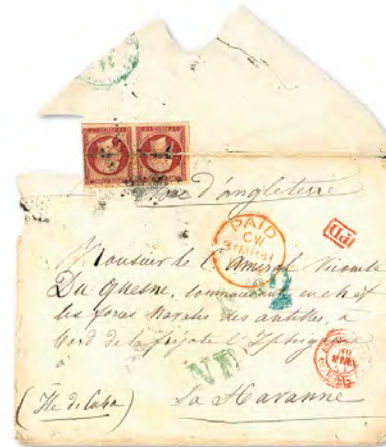 Voie d'angleterre
PAID
CW
31 MR 61
PD
Monsieur le C. Amiral Vicomte
Du Quesne, commandant en chef
les forces navales des antilles, à
bord de la frégate l'Iphigénie
2
(Ile de Cuba)
La Havanne